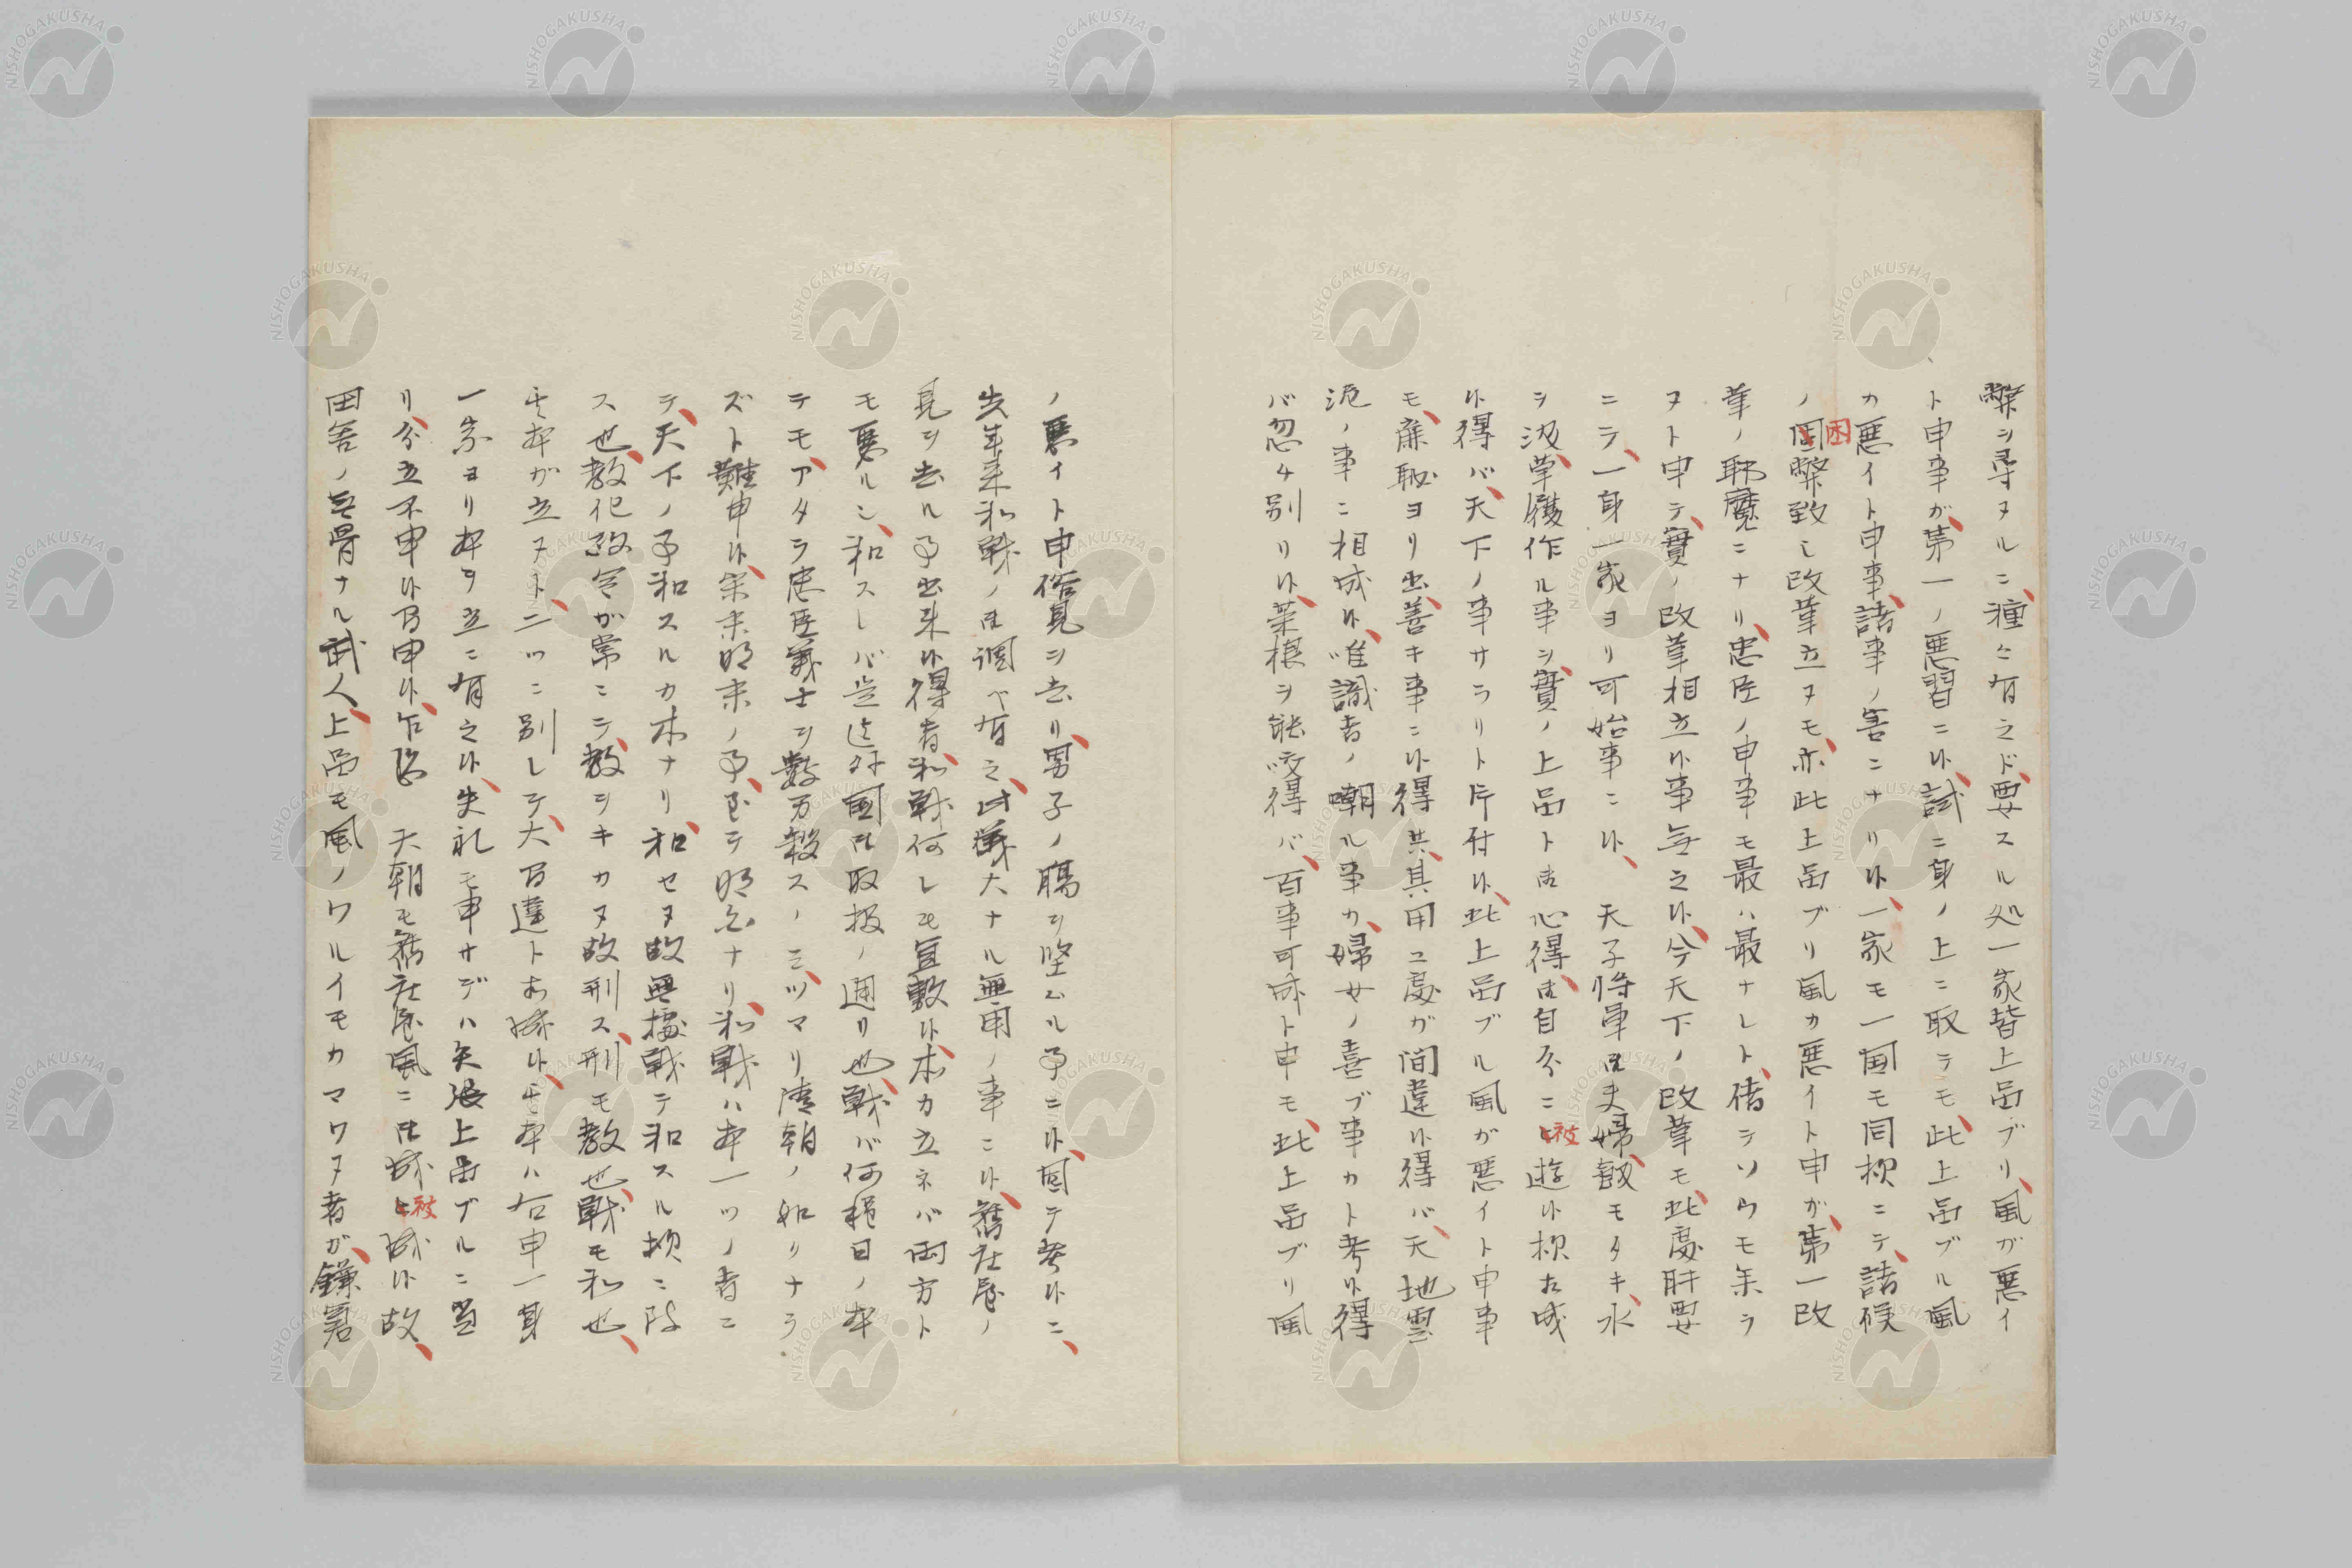 弊ヲ尋ヌルニ種々有之ド要スル処一家皆上品ブリ風ガ悪イ
ト申事ガ第一ノ悪習ニ候試ニ身ノ上ニ取ラモ此上品ブル風
カ悪イト申事諸事ノ害ニナリ候一家モ一国モ同様ニテ諸候
ノ固弊致シ改革立ヌモ亦此上品ブリ風カ悪イト申ガ第一改
困
革ノ邪魔ニナリ忠臣ノ申事モ最ハ最ナレト偖テソウモ参ラ
ヌト申テ實ノ改革相立候事無之候今天下ノ改革モ此處肝要
ニテ一身一家ヨリ可始事ニ候 天子将軍ハ夫婦モタキ水
ヲ汲草履作ル事ヲ實ノ上品トハ心得ハ自分ニ遊候様相成
被
候得バ天下ノ事サラリト片付候此上品ブル風ガ悪イト申事
モ廉恥ヨリ出善キ事ニ候得共其用ユ處ガ間違候得バ天地雲
泥ノ事ニ相成候唯識者ノ嘲ル事カ婦女ノ喜ブ事カト考候得
バ忽チ別リ候菜根ヲ能咬得バ百事可成ト申モ此上品ブリ風
ノ悪イト申俗見ヲ去リ男子ノ腸ヲ堅ムル事ニ候国テ考候ニ
先年来和戦ノ調ベ有之此儀大ナル無用ノ事ニ候舊社屋ノ
見ヲ去ル事出来候得者和戦何レモ宜敷候本カ立ネバ両方ト
モ悪ルシ和スレバ是迄外國取扱ノ通リ也戦バ何程日ノ本
テモアタラ忠臣義士ヲ數万殺スノミツマリ清朝ノ如リナラ
ズト難申候宋末明末ノ事至テ明白ナリ和戦ハ本一ツノ者ニ
テ天下ノ事和スルカ本ナリ和セヌ故無據戦テ和スル様ニ致
ス也教化政令が常ニテ教ヲキカヌ故刑ス刑モ教也戦モ和也
其本ガ立ヌト二ツニ別レテ大間違ト相成候其本ハ右申一身
一家ヨリ本ヲ立ニ有之候失礼モ申サデハ矢張上品ブルニ當
リ分立不申候乃申候乍恐 天朝モ舊社屋風ニ被成候故
被
田舎ノ無骨ナル武人上品モ風ノワルイモカマワヌ者ガ鎌倉